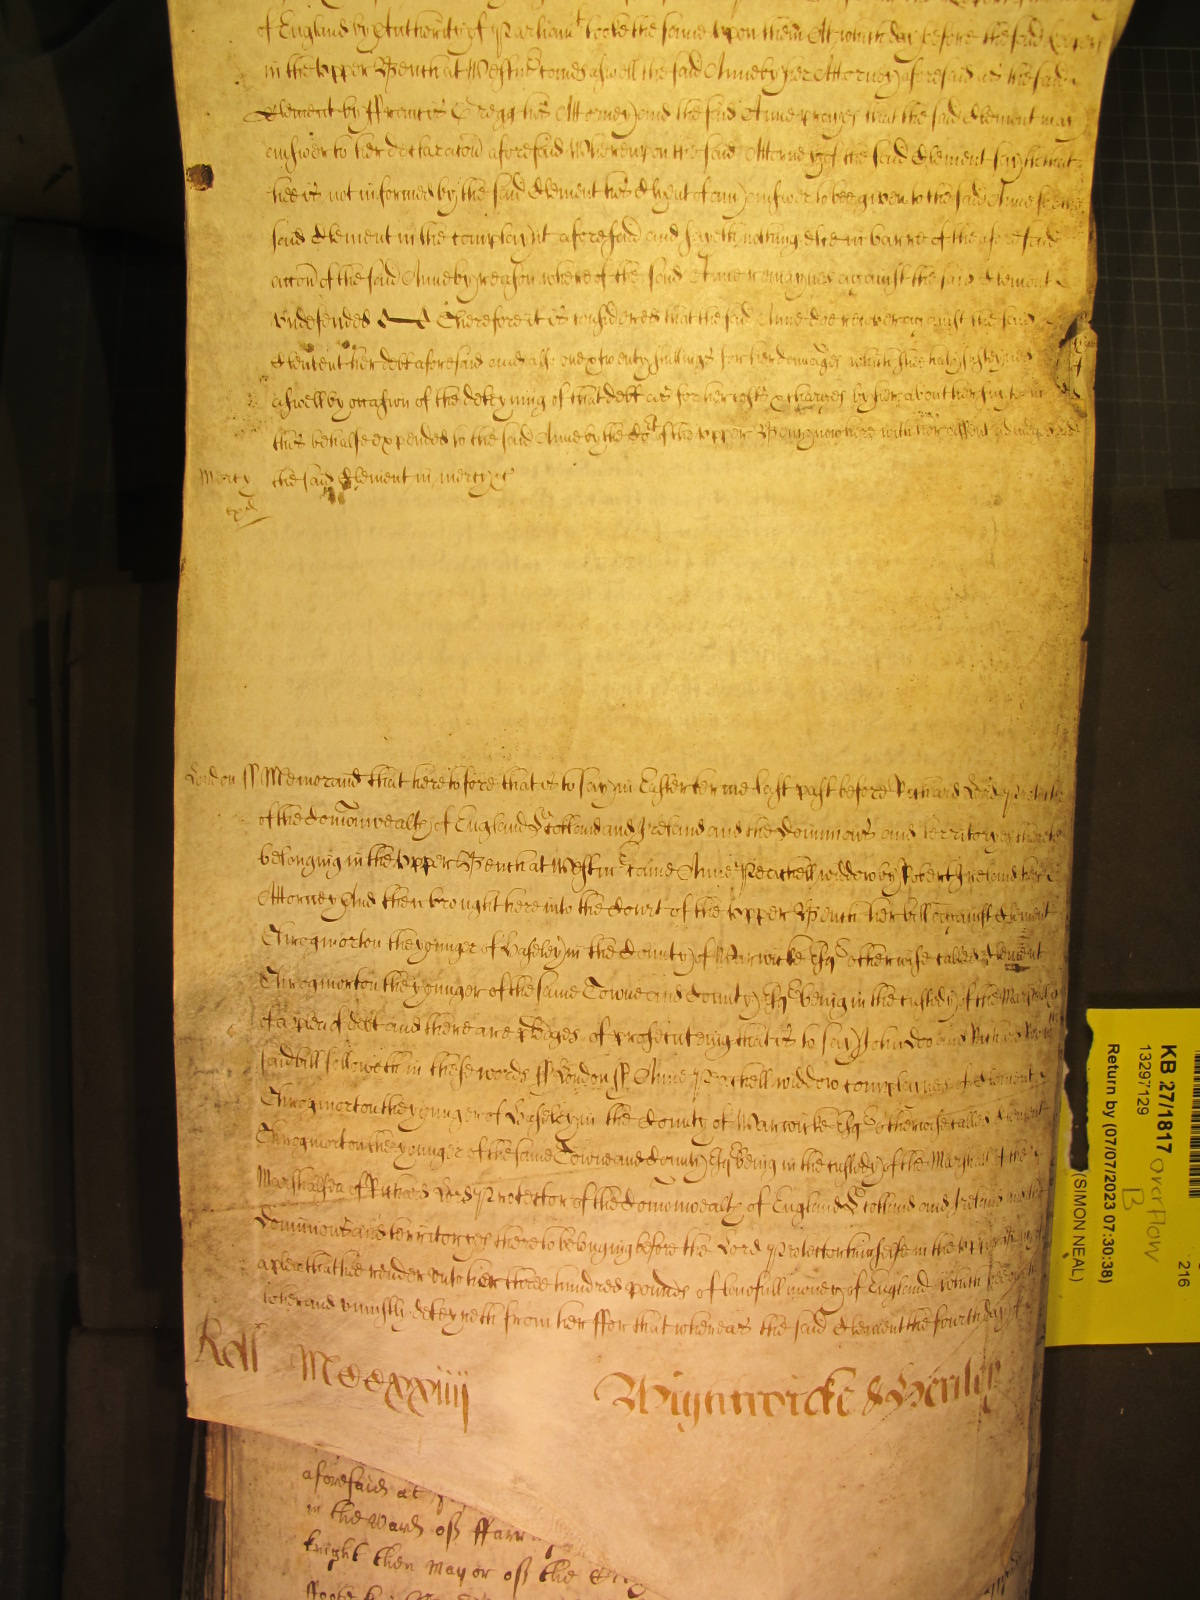 of England by Authority of Parliamt tooke the same upon them At which day before the said
in the Upper Bench at Westmr comes aswell the said Anne by her Attorney aforesaid as the said
Clement by Ffrancis Gregg his Attorney and the said Anne prayes that the said Clement may
answer to her declaracon aforesaid Whereupon the said Attorney of the said Clement sayth that
hee is not informed by the said Clement his Clyent of any answer to bee given to the said Anne for the
said Clement in the complaynt aforesaid and sayeth nothing else in barre of the aforesaid
accon of the said Anne by reason whereof the said Anne remaynes against the said Clement
undefended Therefore it is considered that the said Anne doe recover against the said
Clement her debt aforesaid and alsoe twenty shillings for her damages which shee hath susteyned
aswell by occasion of the deteyning of that debt as for her costs & charges by her about her suite in
this behalfe expended to the said Anne by the Cort of the Upper Bench now here with her assent adiudged And
Mercy the said Clement in mercy &c
London ss Memorand that heretofore that is to say in Easter terme last past before Richard Lord Protector
of the Comonwealth of England Scotland and Ireland and the Dominions and territoryes thereto
belonging in the Upper Bench at Westmr came Anne Peachell widdow by Robert Ireland her
Attorney And then brought here into the Court of the Upper Bench her bill against Clement
Throgmorton the younger of Haseley in the County of Warwicke Esqr otherwise called Clement
Throgmorton the younger of the same Towne and County Esqr being in the custody of the Marshall
of a plea of debt and there are pledges of prosecuteing that is to say John Doo and Richard Roo
said bill followeth in these words ss London ss Anne Peachell widdow complaynes of Clement
Throgmorton the younger of Haseley in the County of Warwicke Esqr otherwise called Clement
Throgmorton the younger of the same Towne and County Esqr being in the custody of the Marshall of the
Marshalsea of Richard Lord Protector of the Comonwealth of England Scotland and Ireland and the
Dominions and territoryes thereto belonging before the Lord Protector himselfe in the Upper Bench of
a plea that hee render unto her three hundred pounds of lawfull money of England which hee
to her and uniustly deteyneth from her Ffor that whereas the said Clement the fourth day of
Roll MCCxxiiij Wightwicke & Henley
aforesaid at
in the Ward of Ffarr
knight then Mayor of the
KB 27/1817
13297129
Return by (07/07/2023 07:30:38)
(SIMON NEAL)
216
overflow
B